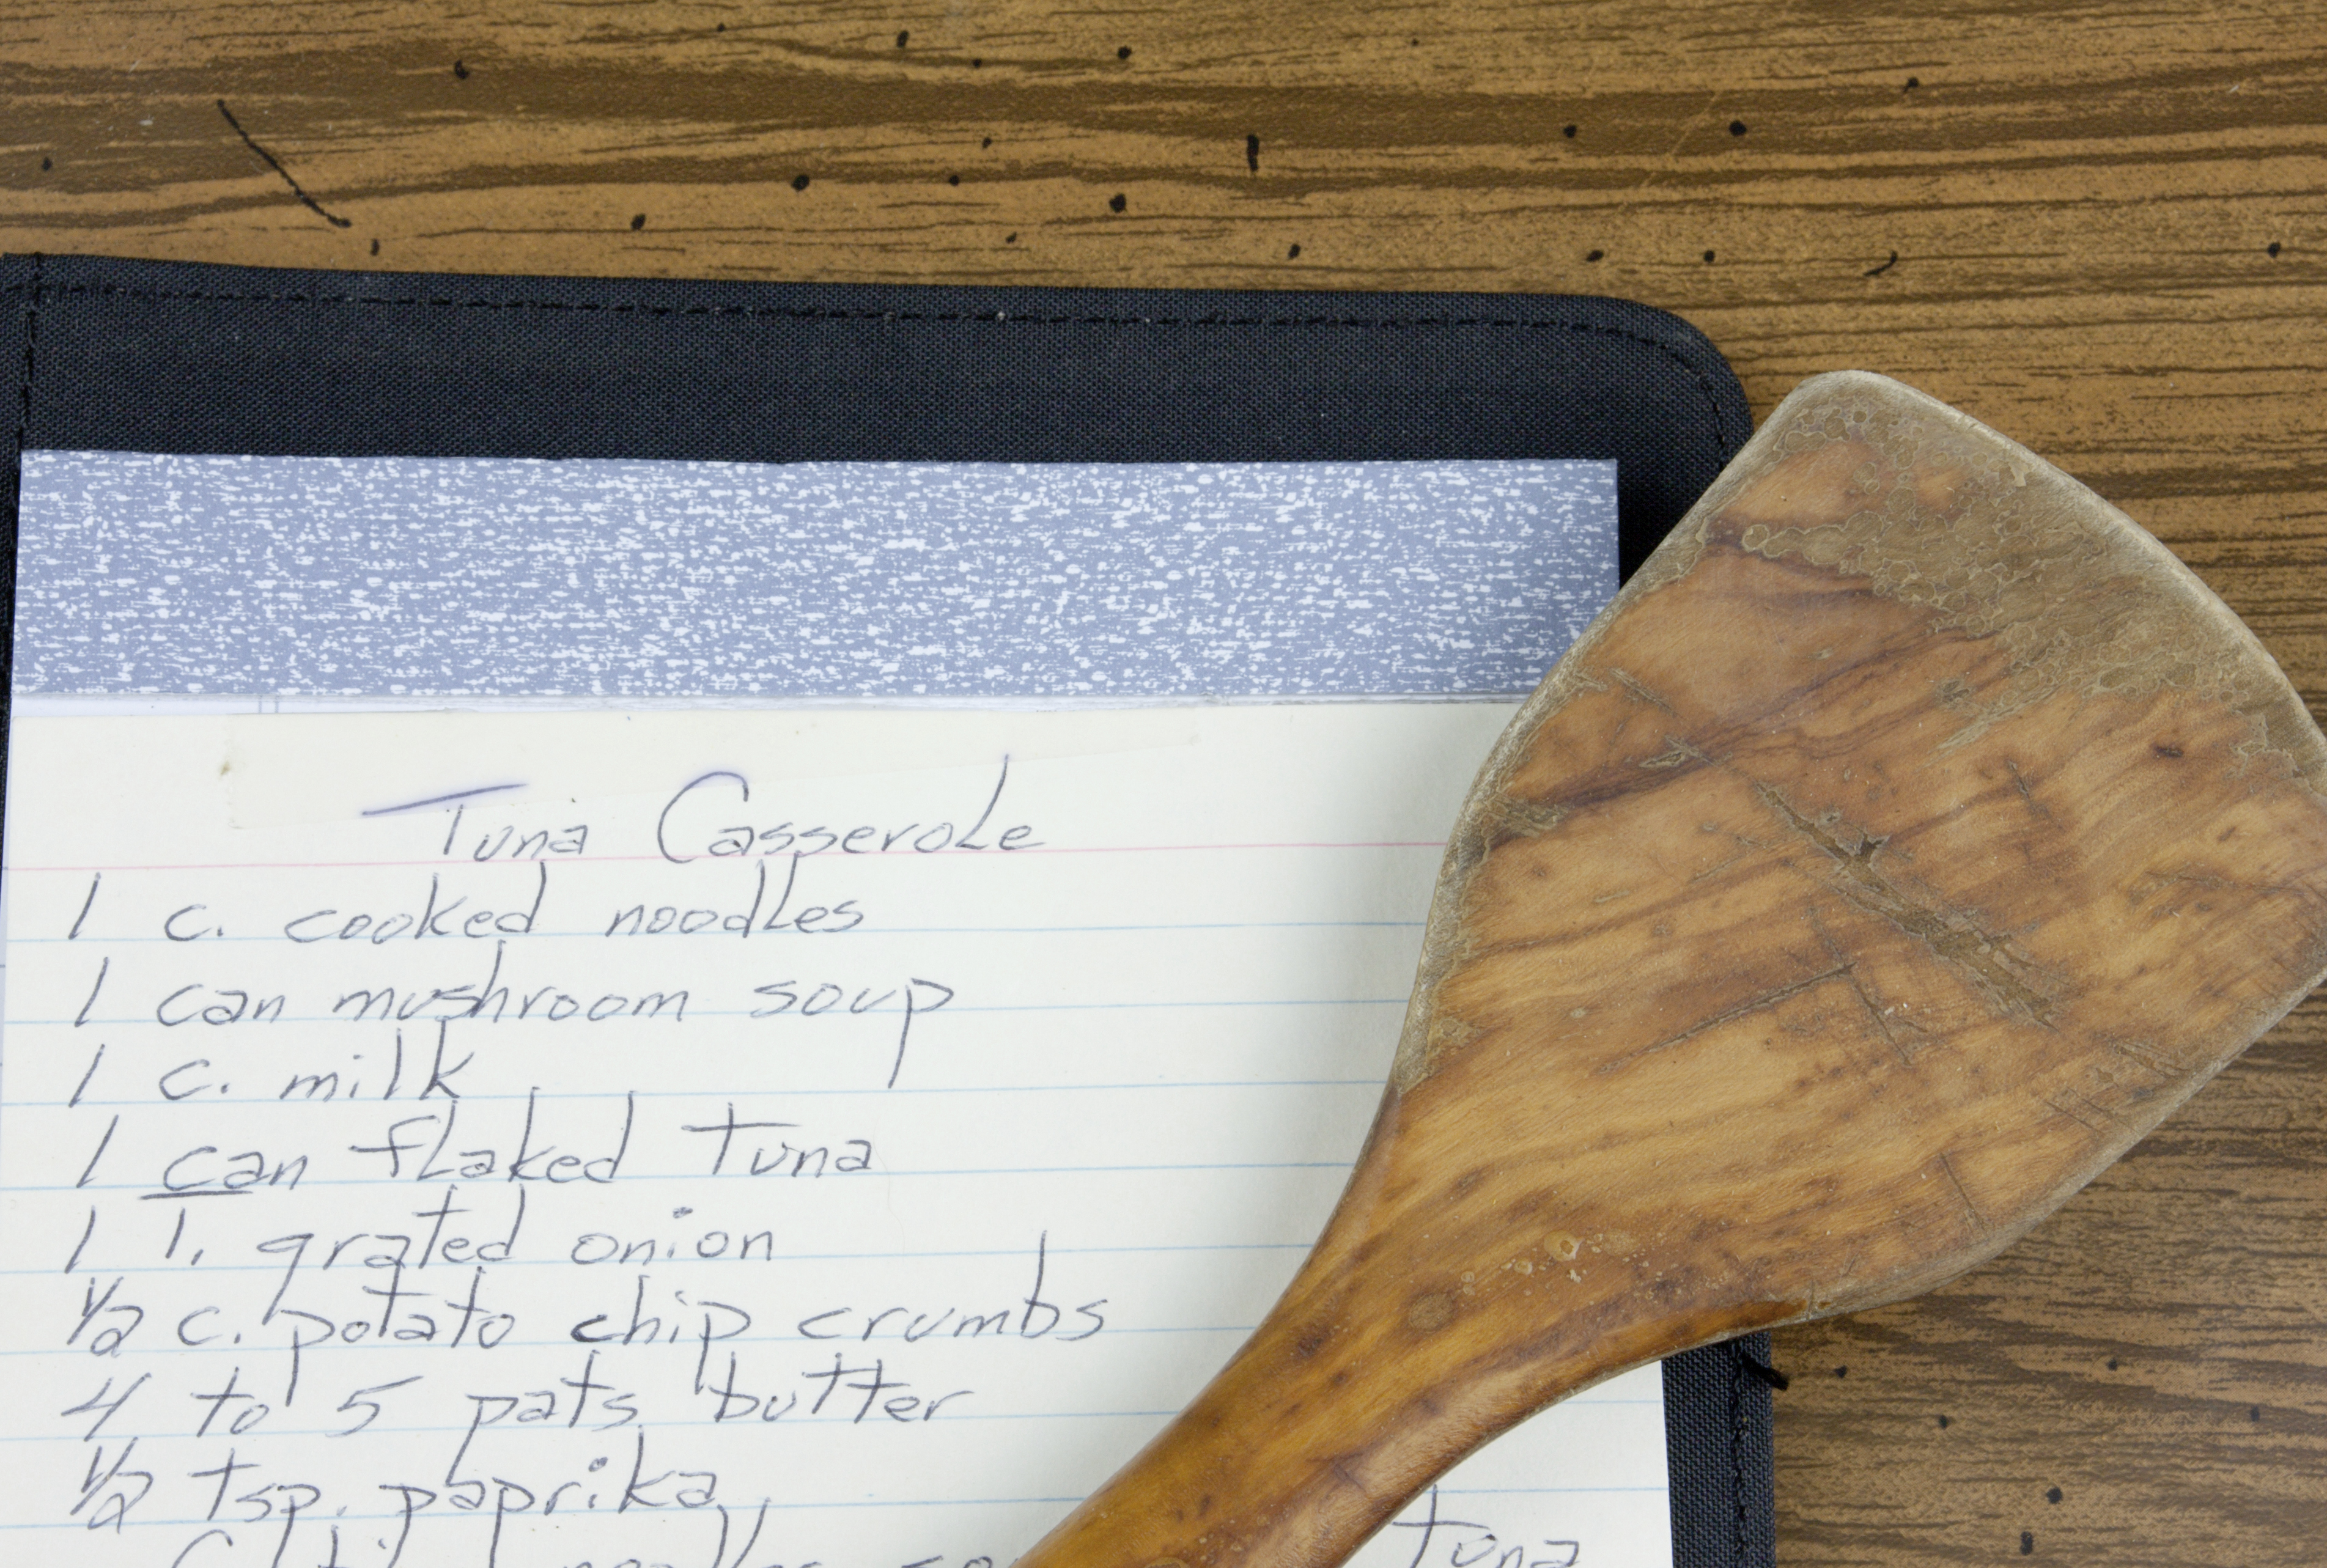 Tuna Casserole
1 c. cooked noodles
1 can mushroom soup
1 c. milk
1 can flaked tuna
1 T. grated onion
1/2 c. potato chip crumbs
4 to 5 pats butter
1/2 tsp. paprika
noodles tuna